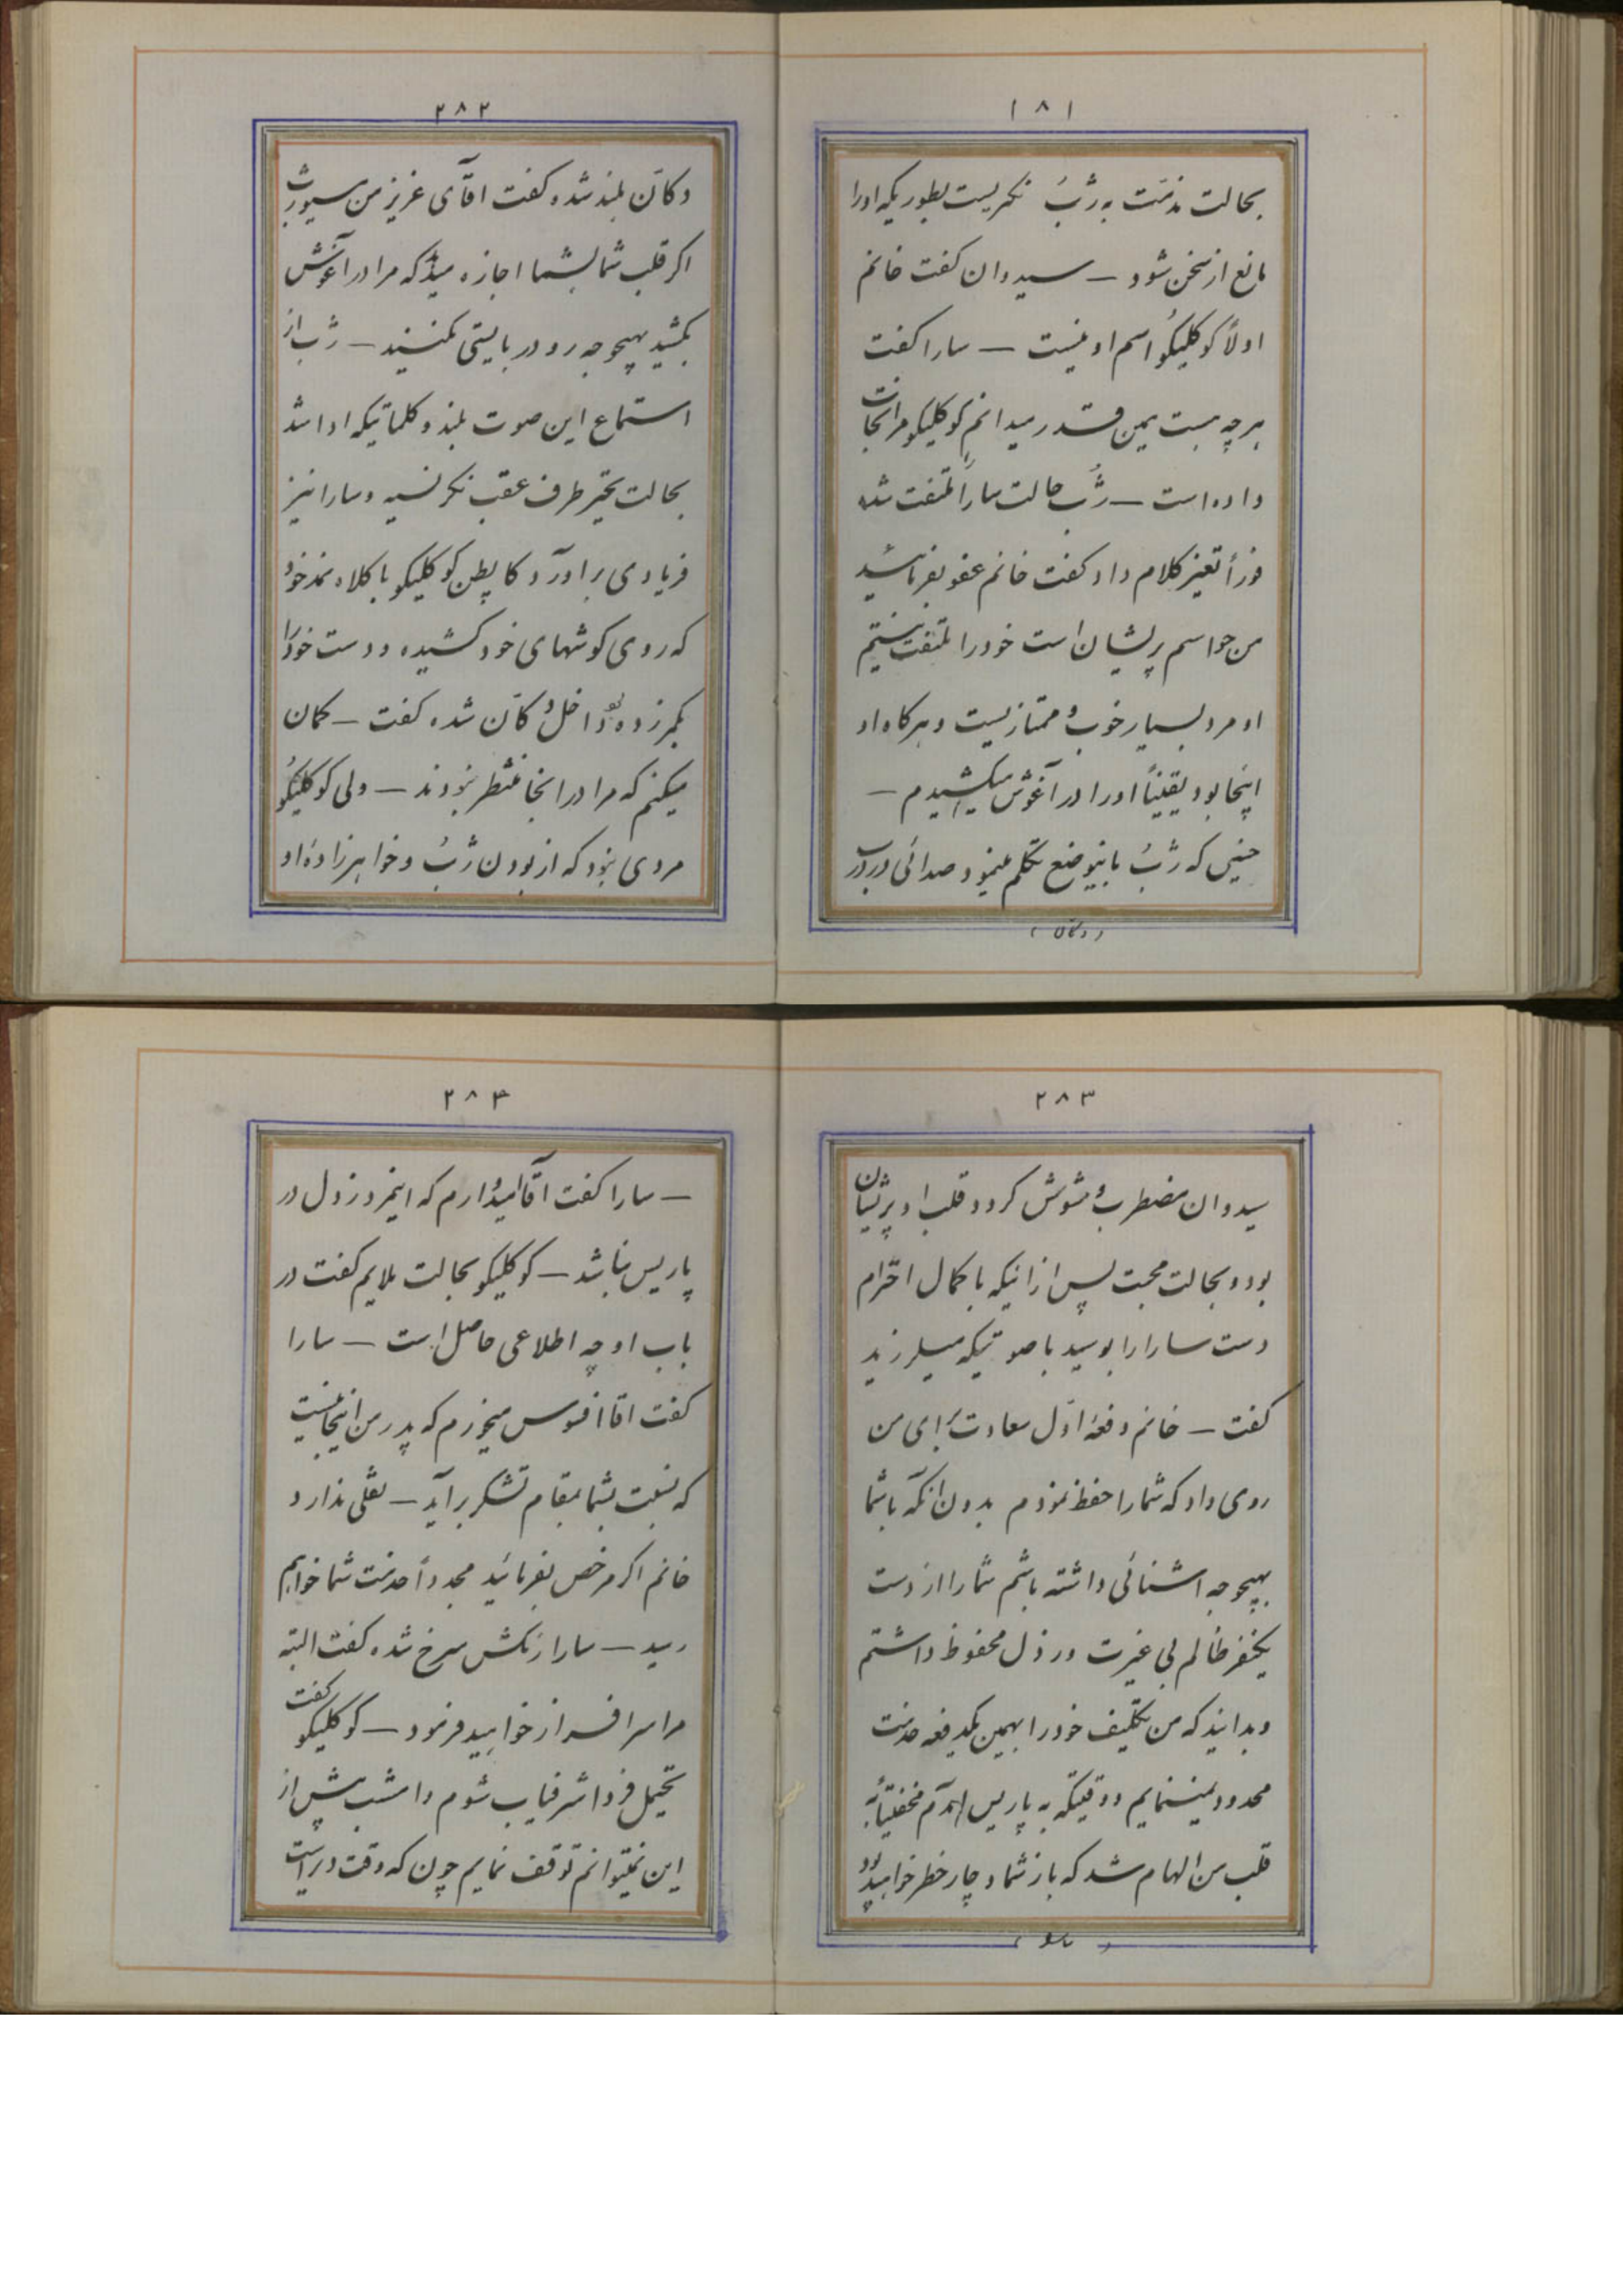 ۱۸۱
بحالت مذمت به ژب نگریست بطوریکه او را
مانع از سخن شود – سیدوان کفت خانم
اولاً کوکلیکو اسم او نیست – سارا کفت
هر چه هست همین قدر میدانم کوکلیکو مرا نجات
داده است – ژب حالت سارا ملتفت شده
فوراً تغییر کلام داد کفت خانم عفو بفرمائید
من حواسم پریشان است خود را ملتفت نیستم
او مرد بسیار خوب و ممتازیست و هرکاه او
اینجا بود یقیناً او را در آغوش میکشیدم –
حینی که ژب باینوضع تکلم مینمود صدائی در درب
(دکان)
۲۸۲
دکان بلند شده کفت اقآی عزیز من سیورژب
اکر قلب شما بشما اجازه میدهد که مرا در آغوش
بکشید بهیچوجه رودربایستی نکنید – ژب از
استماع این صوت بلند و کلماتیکه ادا شد
بحالت تحیر طرف عقب نکریسته و سارا نیز
فریادی براورد کاپطن کوکلیکو با کلاه نمد خود
که روی کوشهای خود کشیده و دست خود را
بکمر زده بود داخل دکان شده کفت – کمان
میکنم که مرا در اینجا منتظر نبودند – ولی کوکلیکو
مردی نبود که از بودن ژب و خواهرزاده او
۲۸۳
سیدوان مضطرب و مشوش کردد قلب او پریشان
بود و بحالت محبت پس از انیکه با کمال احترام
دست سارا را بوسید با صوتیکه میلرزید
کفت – خانم دفعه اول سعادت برای من
روی داد که شما را حفظ نمودم بدون آنکه با شما
بهیچوجه اشنائی داشته باشم شما را از دست
یکنفر ظالم بی غیرت و رذل محفوظ داشتم
و بدانید که من تکلیف خود را بهمین یکدفعه خدمت
محدود نمینمایم و وقتیکه به پاریس امدم مخفیاً به
قلب من الهام شد که باز شما دچار خطر خواهید بود
(سارا)
۲۸۴
– سارا کفت اقا امیدوارم که اینمرد رذل در
پاریس نباشد – کوکلیکو بحالت ملایم کفت در
باب او چه اطلاعی حاصل است – سارا
کفت اقا افسوس میخورم که پدر من اینجا نیست
که نسبت بشما بمقام تشکر براید – نقلی ندارد
خانم اکر مرخص بفرمائید مجدداً خدمت شما خواهم
رسید – سارا رنکش سرخ شده کفت البته
مرا سرافراز خواهید فرمود – کوکلیکو کفت
تحیمل فردا شرفیاب شوم و امشب بیش از
این نمیتوانم توقف نمایم چون که وقت دیر است